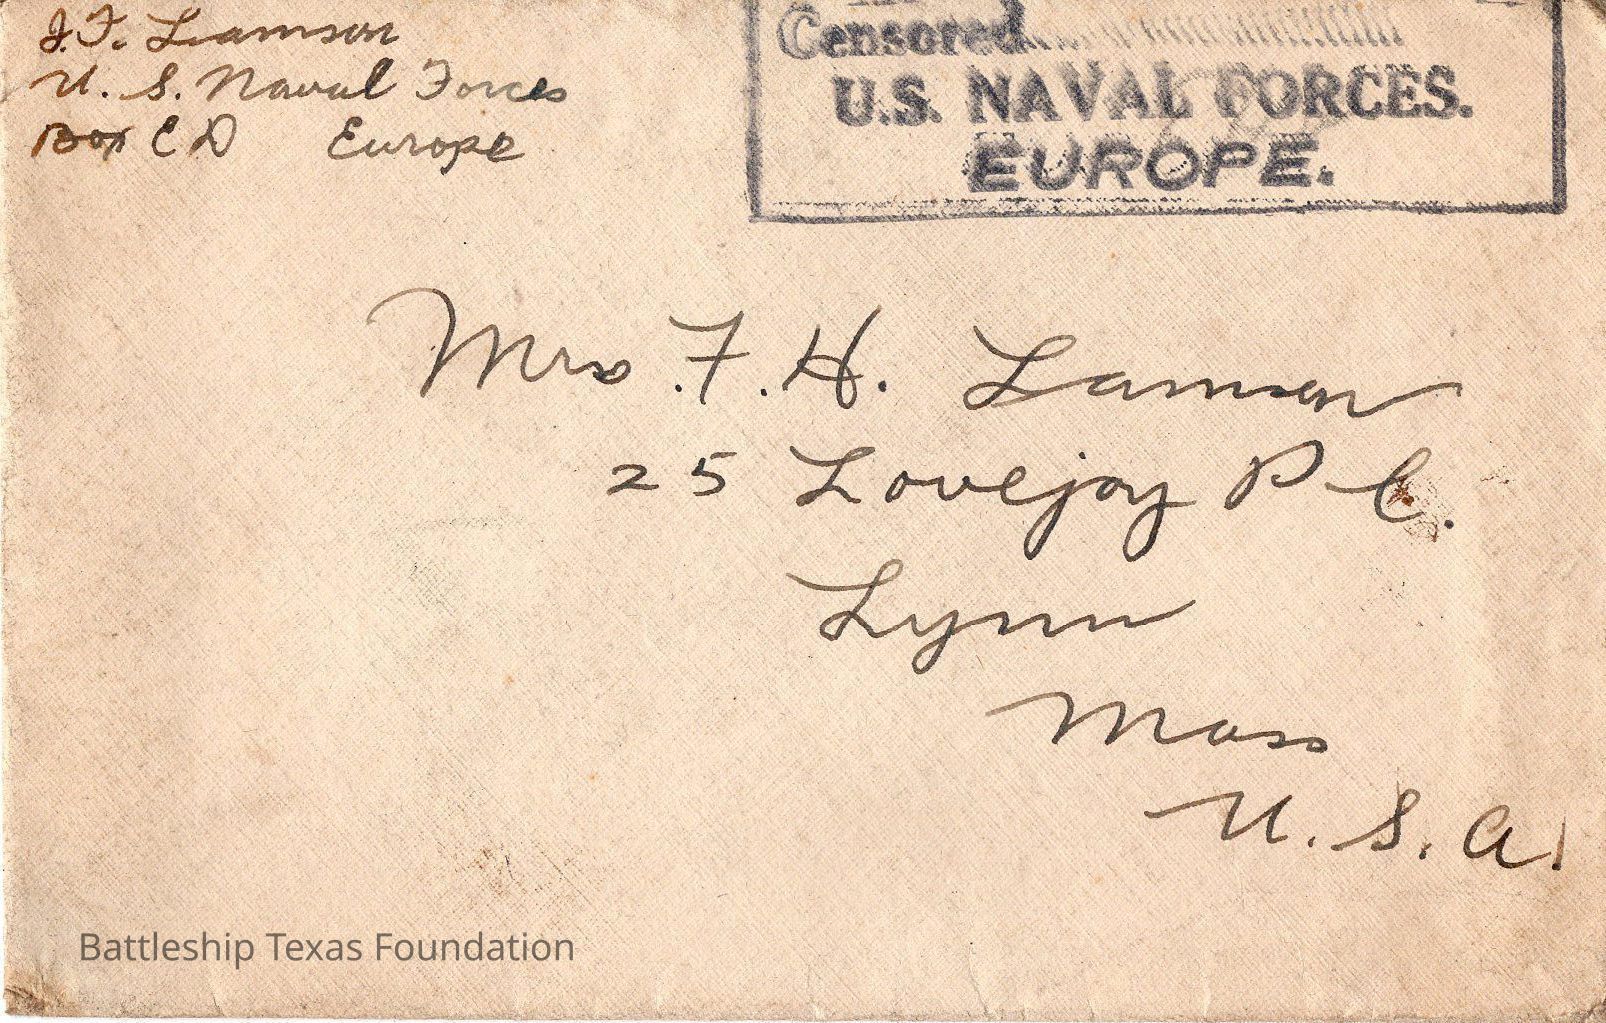 J. F. Lamson
U. S. Naval Forces
Box C D Europe
Censored
U.S. NAVAL FORCES.
EUROPE.
Mrs. F. H. Lamson
25 Lovejoy Pl.
Lynn
Mass
U. S. A.
Battleship Texas Foundation